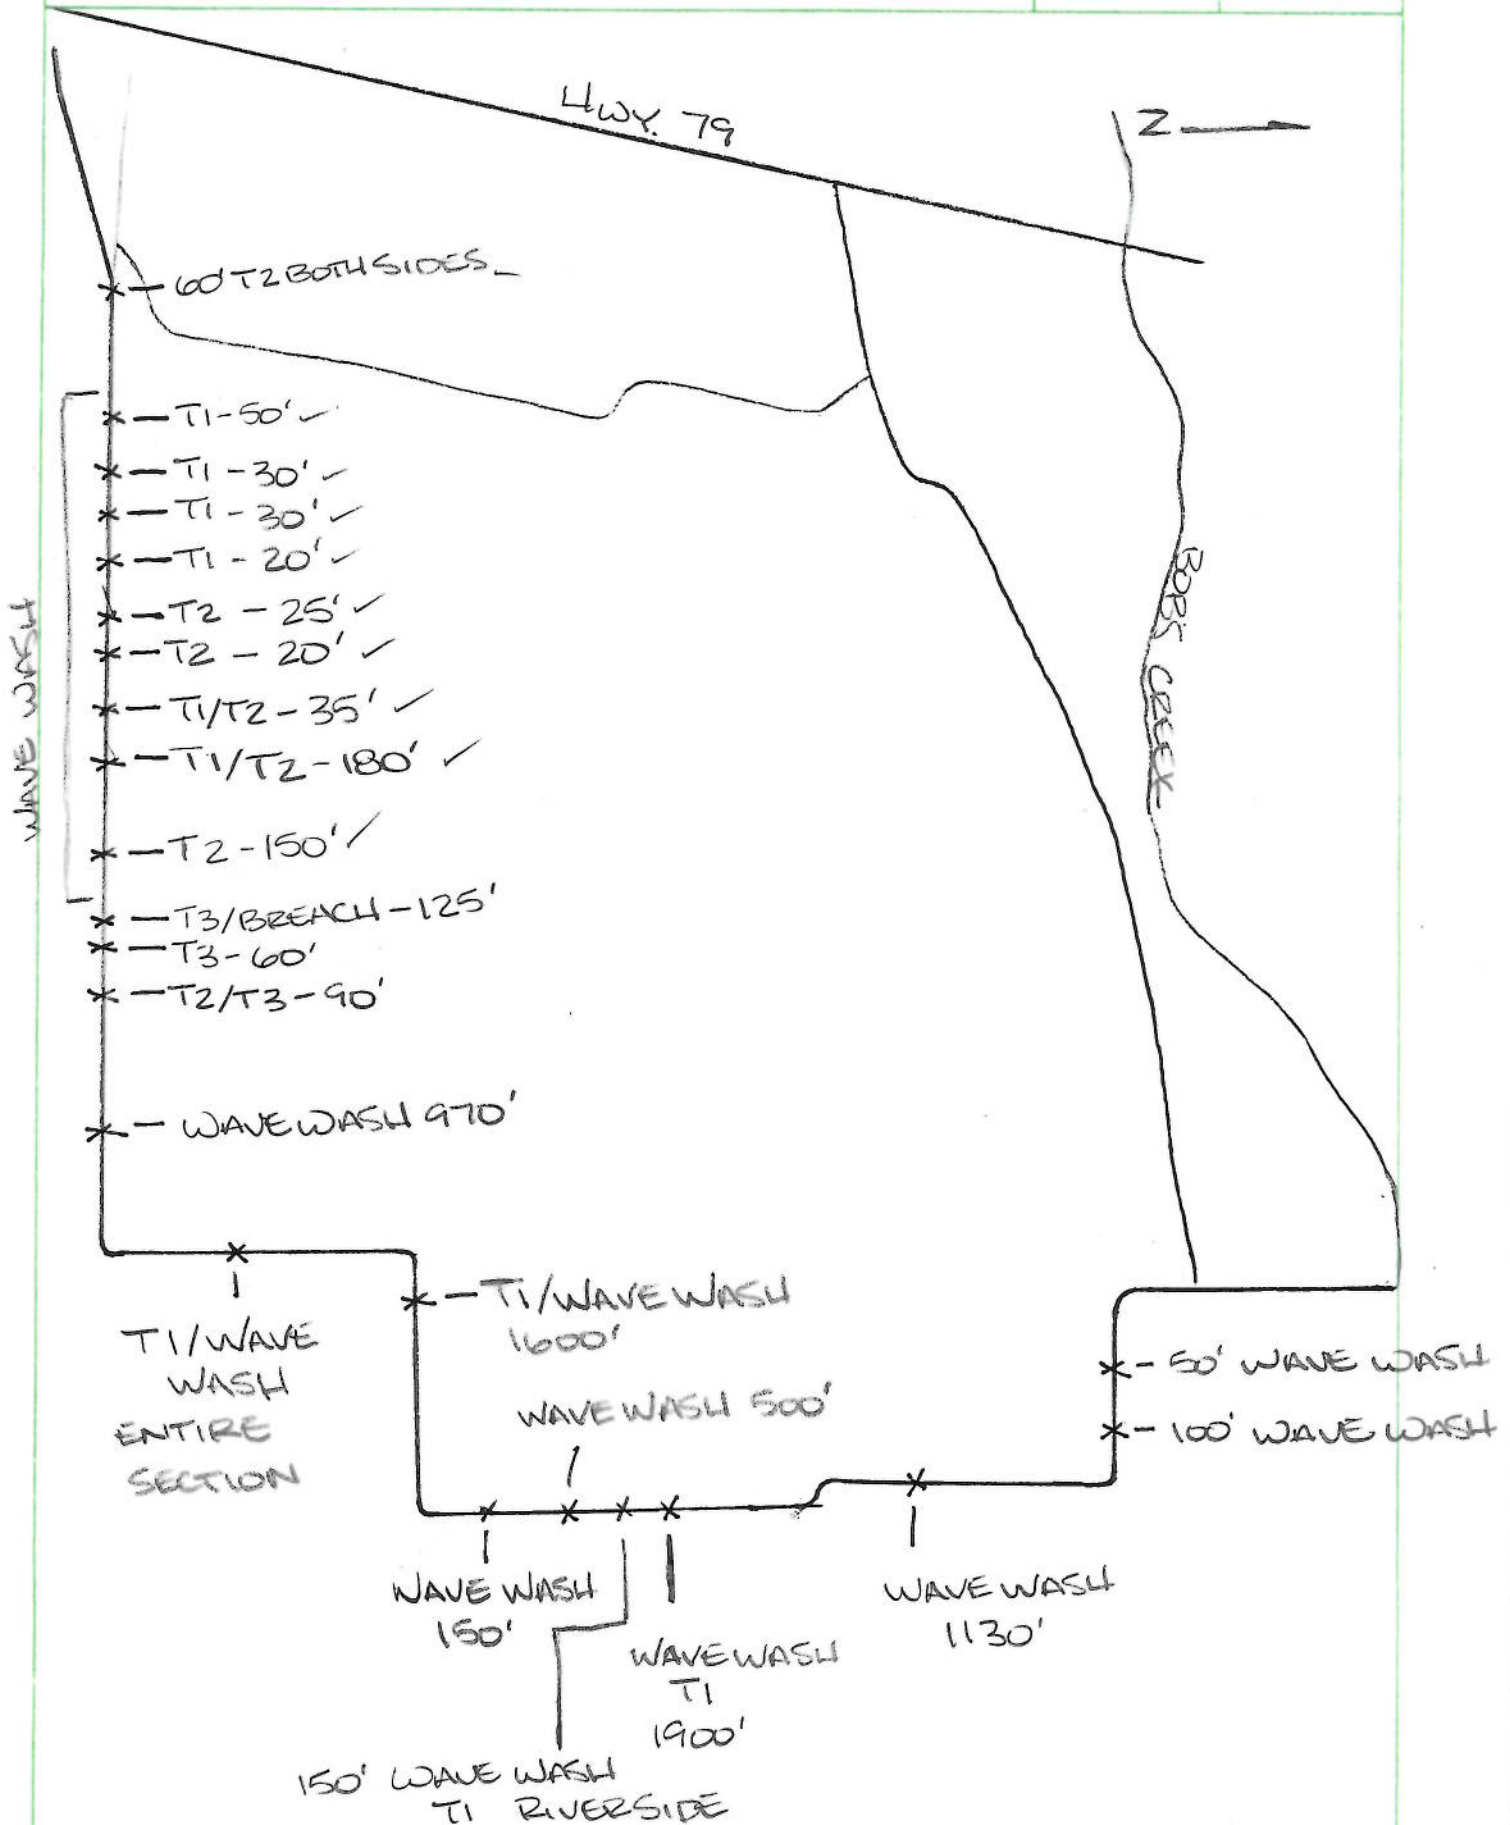 HWY. 79
N
60' T2 BOTH SIDES
T1-50' ✓
T1-30' ✓
T1-30' ✓
T1-20' ✓
T2-25' ✓
T2-20' ✓
T1/T2-35' ✓
T1/T2-180' ✓
T2-150' ✓
T3/BREACH-125'
T3-60'
T2/T3-90'
WAVE WASH
BOBS CREEK
WAVE WASH 970'
T1/WAVE
WASH
ENTIRE
SECTION
T1/WAVE WASH
1600'
WAVE WASH 500'
50' WAVE WASH
100' WAVE WASH
WAVE WASH
150'
WAVE WASH
T1
1900'
WAVE WASH
1130'
150' WAVE WASH
T1 RIVERSIDE